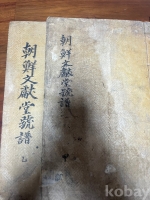 朝鮮文獻堂號譜
朝鮮文獻堂號譜 乙
kobay